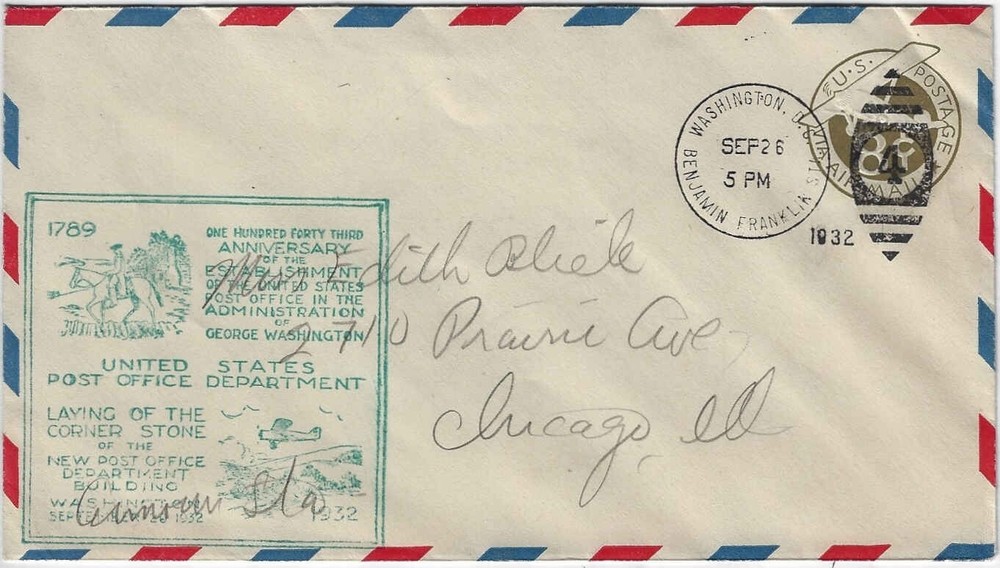 1789
ONE HUNDRED FORTY THIRD
ANNIVERSARY
OF THE
ESTABLISHMENT
OF THE UNITED STATES
POST OFFICE IN THE
ADMINISTRATION
OF
GEORGE WASHINGTON
UNITED STATES
POST OFFICE DEPARTMENT
LAYING OF THE
CORNER STONE
OF THE
NEW POST OFFICE
DEPARTMENT
BUILDING
WASHINGTON
SEPTEMBER 26 1932
1932
WASHINGTON, D.C.
SEP 26
5 PM
BENJAMIN FRANKLIN STA
1932
4
U.S. POSTAGE
8¢
VIA AIR MAIL
Edith
2710 Prairie Ave
Chicago, Ill
Sta